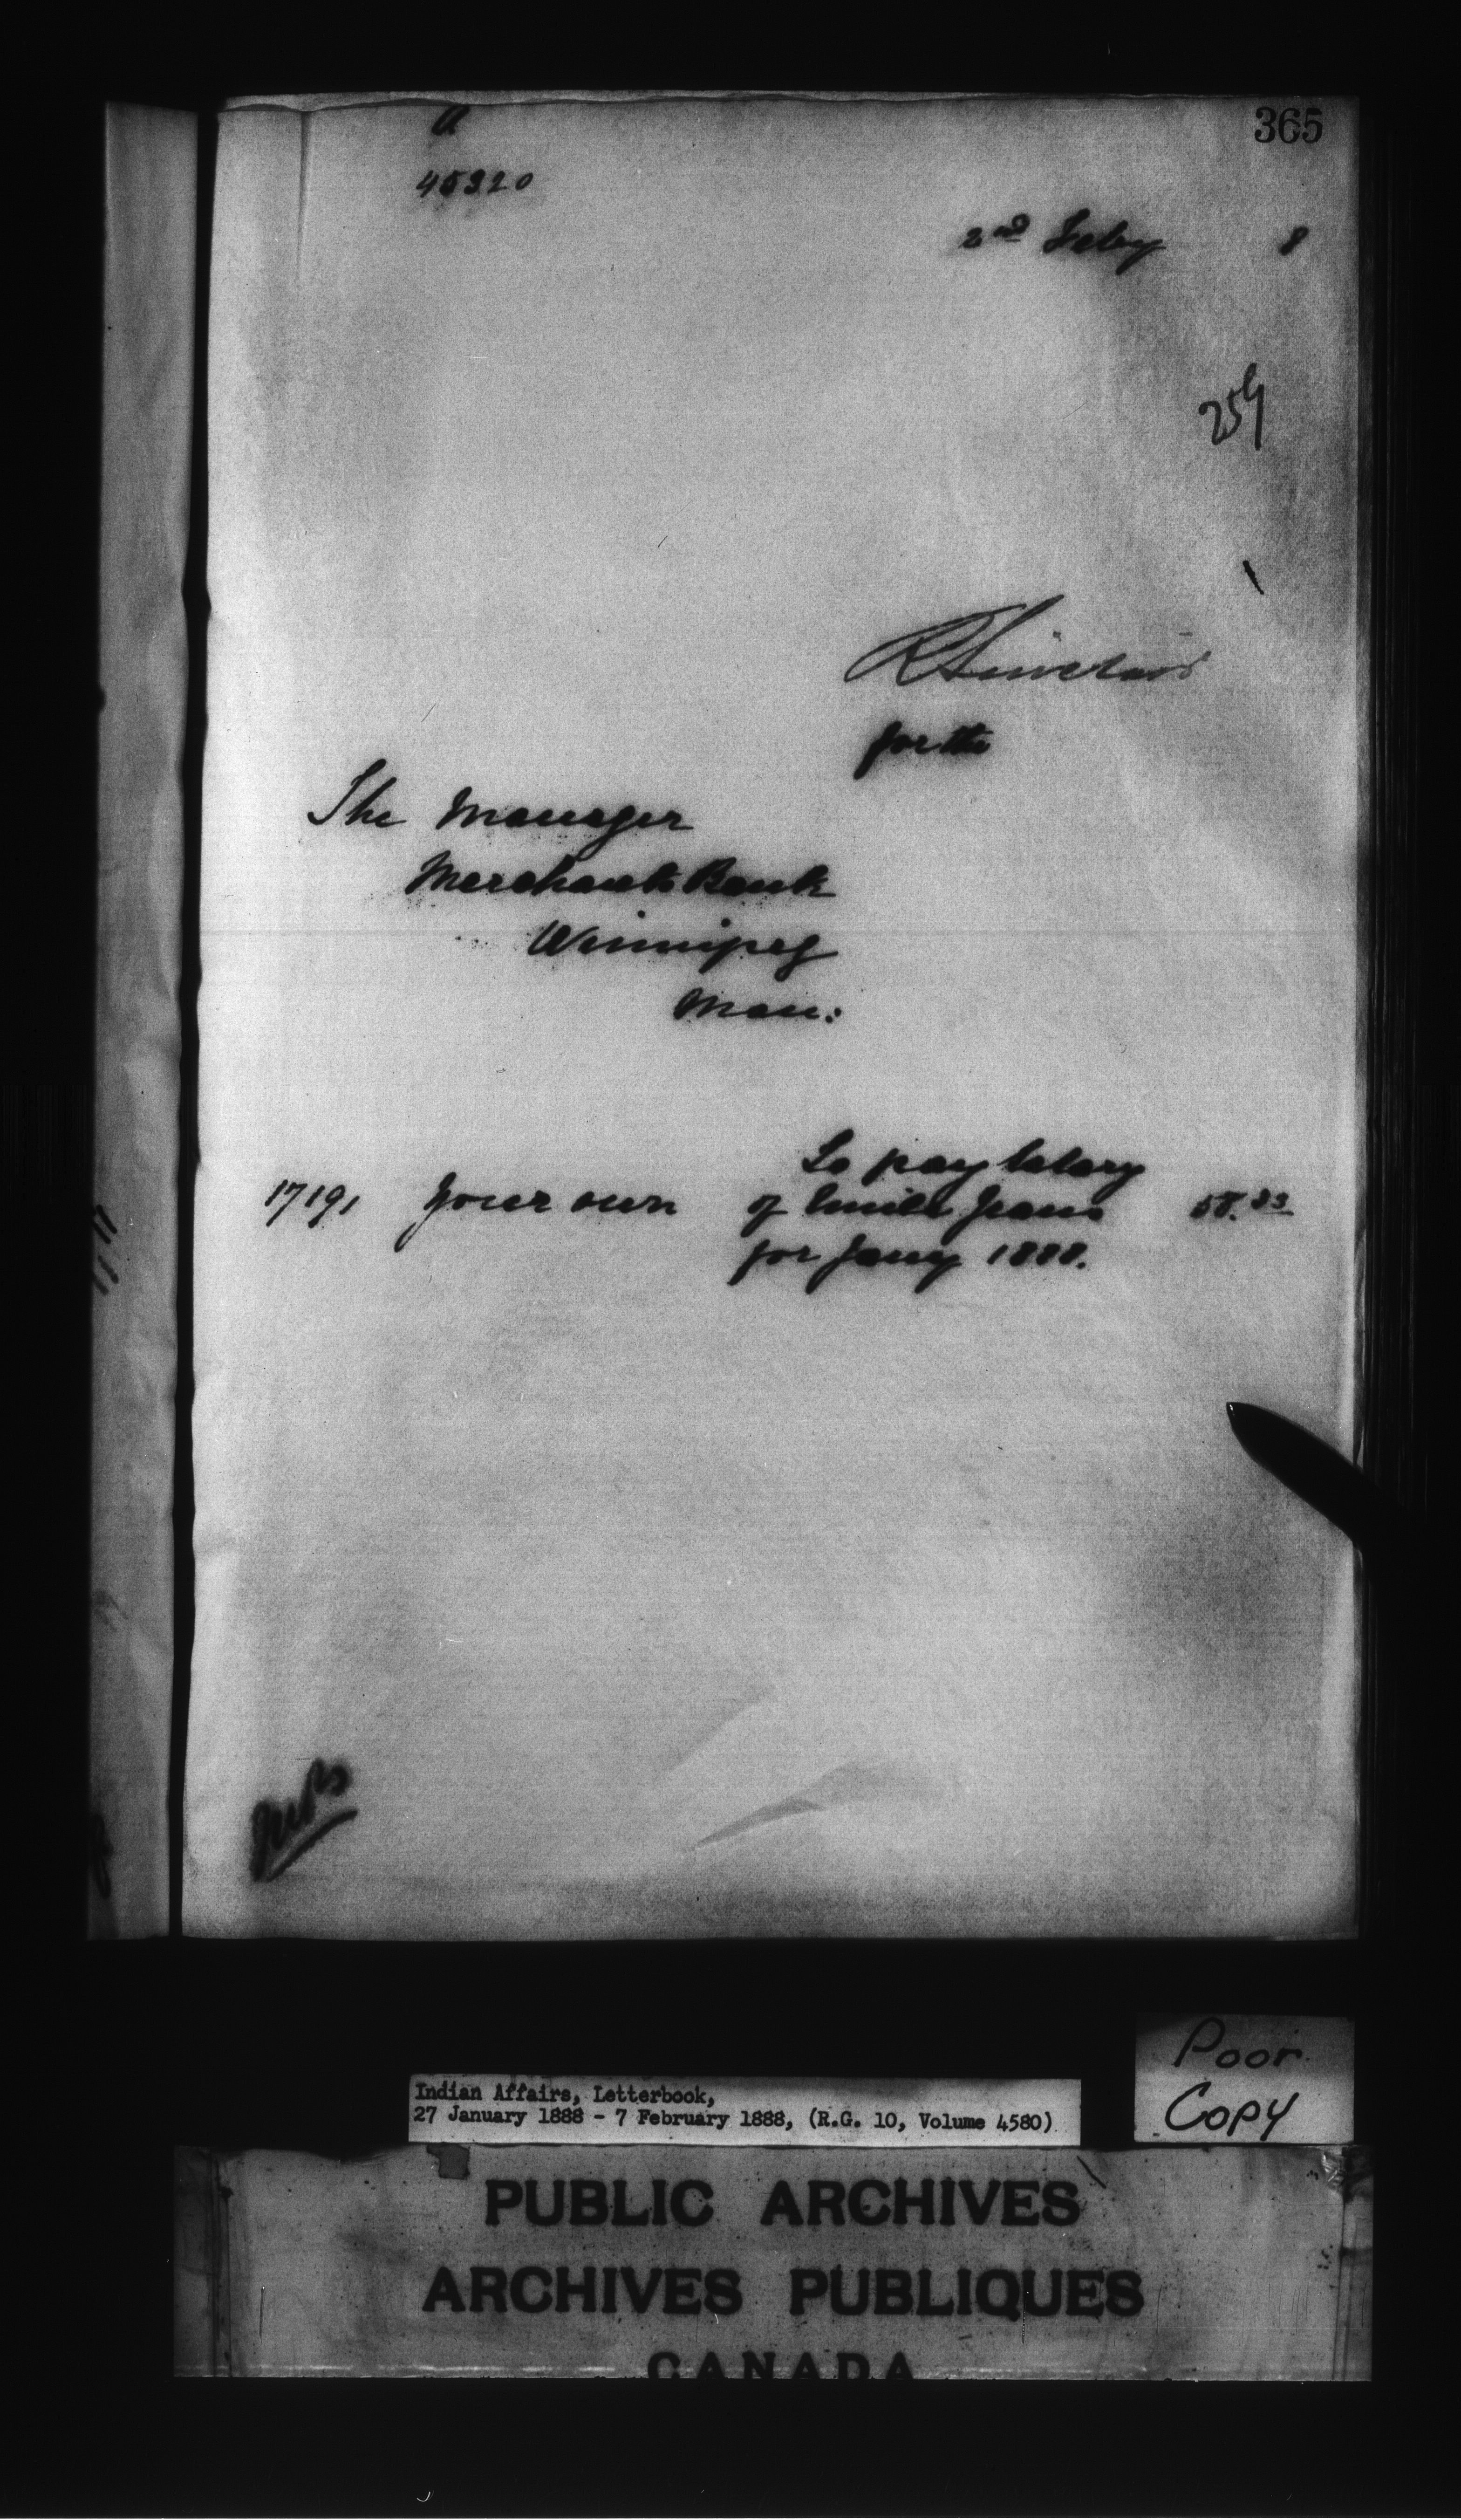 365
45320
2nd Feby 8
254
R Sinclair
for the
The Manager
Merchants Bank
Winnipeg
Man:
To pay Salary
17191 Your own of Emile Jeans 58.33
for Jany 1888.
Poor
Copy
Indian Affairs, Letterbook,
27 January 1888 - 7 February 1888, (R.G. 10, Volume 4580)
PUBLIC ARCHIVES
ARCHIVES PUBLIQUES
CANADA